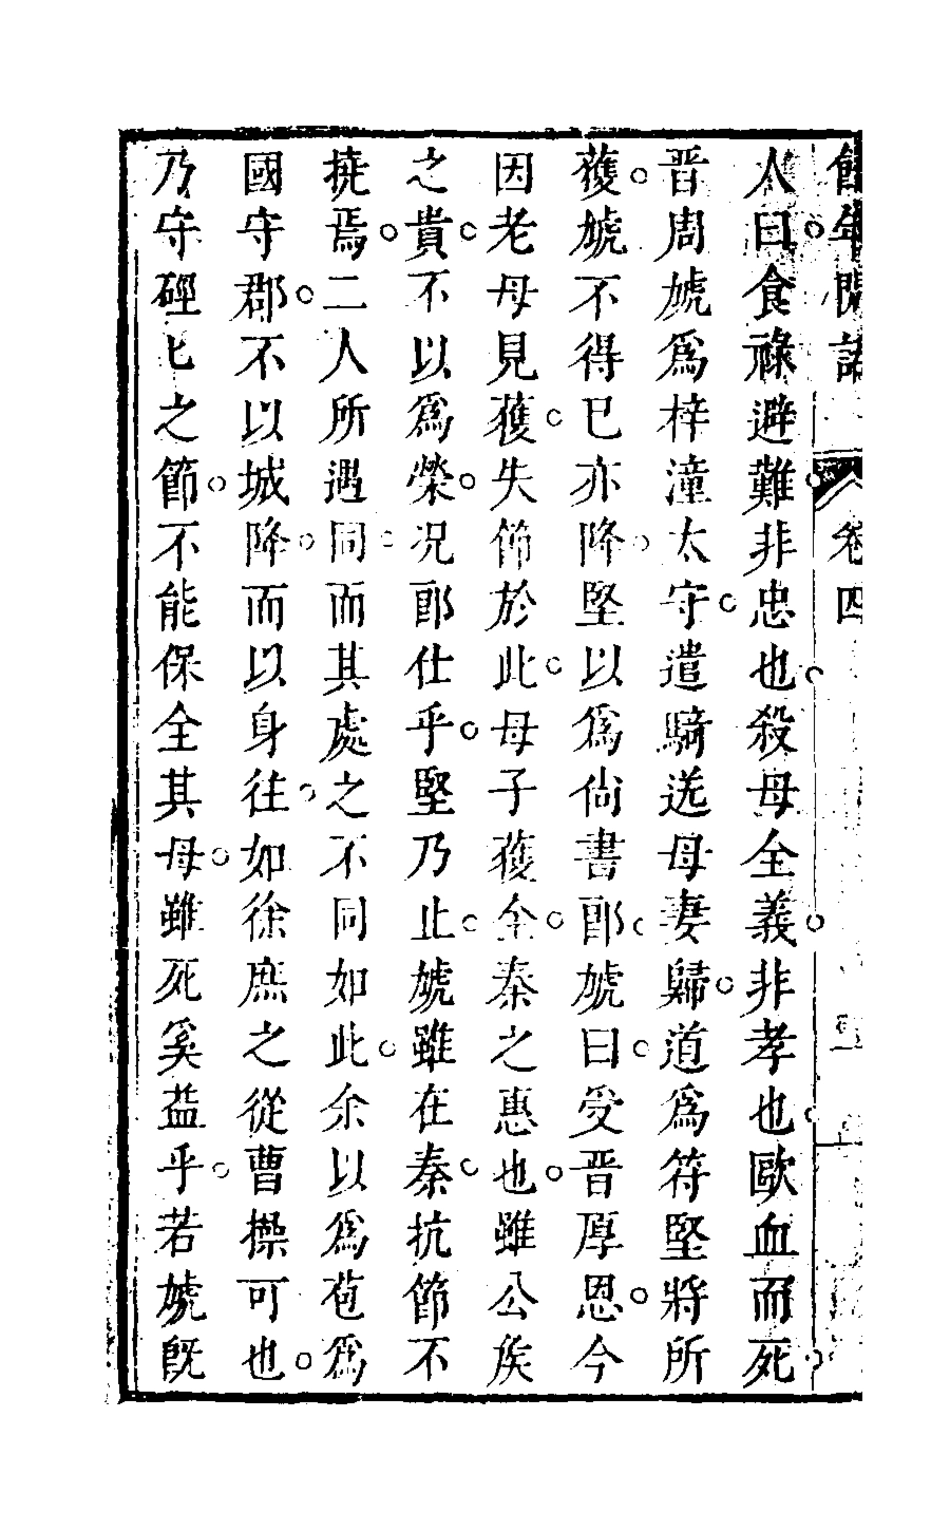 餘年閒話 卷四
人曰食祿避難非忠也殺母全義非孝也歐血而死
晋周虓爲梓潼太守遣騎送母妻歸道爲符堅將所
獲虓不得已亦降堅以爲尙書郎虓曰受晋厚恩今
因老母見獲失節於此母子獲全秦之惠也雖公矦
之貴不以爲榮况郎仕乎堅乃止虓雖在秦抗節不
撓焉二人所遇同而其處之不同如此余以爲苞爲
國守郡不以城降而以身往如徐庶之從曹操可也
乃守硜匕之節不能保全其母雖死奚益乎若虓旣